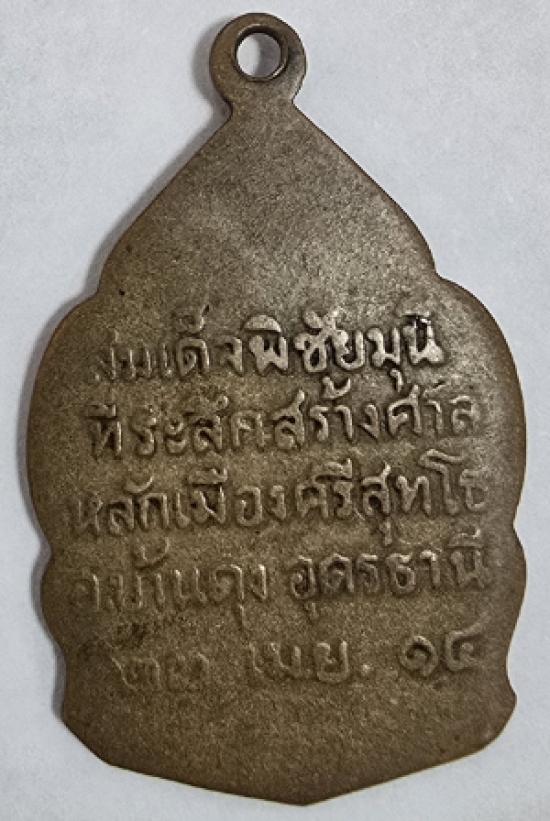 สมเด็จพิชัยมุนี
ที่ระลึกสร้างศาล
หลักเมืองศรีสุทโธ
อ.บ้านดุง อุดรธานี
๒๓ เม.ย. ๑๔